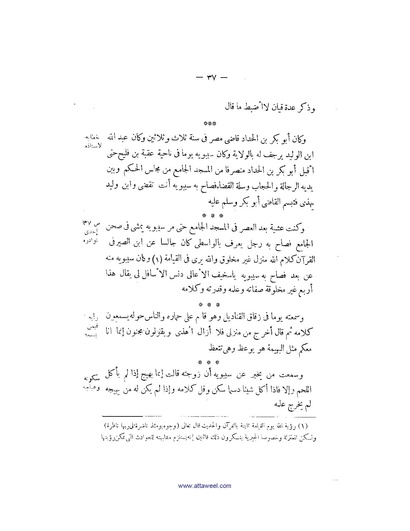 — ٣٧ —
وذكر عدة قيان لا أضبط ما قال
***
وكان أبو بكر بن الحداد قاضى مصر فى سنة ثلاث وثلاثين وكان عبد الله
ابن الوليد يرجف له بالولاية وكان سيبويه يوما فى ناحية عقبة بن فليح حتى
اقبل أبو بكر بن الحداد منصرفا من المسجد الجامع من مجالس الحكم وبين
يديه الرجالة والحجاب وسلة القضاء فصاح به سيبويه أنت تقضى وابن وليد
يهذى فتبسم القاضى أبو بكر وسلم عليه
* * *
وكنت عشية بعد العصر فى المسجد الجامع حتى مر سيبويه يمشى فى صحن
الجامع فصاح به رجل يعرف بالواسطى كان جالسا عن ابن
القرآن كلام الله منزل غير مخلوق والله يرى فى القيامة (١) وكان سيبويه منه
عن بعد فصاح به سيبويه ياسخيف الأعالى دنس الأسافل لى يقال هذا
أربع غير مخلوقة صفاته وعلمه وقدرته وكلامه
* * *
وسمعته يوما فى زقاق القناديل وهو قائم على حماره والناس حوله يسمعون
كلامه ثم قال أخرج من منزلى فلا أزال أهذى ويقولون مجنون إنما انا
معكم مثل البهيمة هو يوعظ وهى تتعظ
* * *
وسمعت من يخبر عن سيبويه أن زوجته قالت إنما يهيج إذا لم يأكل
اللحم وإلا فاذا أكل شيئا دسما سكن وقل كلامه وإذا لم يكن له من يهيجه
لم يخرج عليه
(١) رؤية الله يوم القيامة ثابتة بالقرآن والحديث قال تعالى (وجوه يومئذ ناضرة إلى ربها ناظرة)
ولكن المعتزلة وخصوصا الجبرية ينكرون ذلك قائلين إنه يستلزم مشابهته للحوادث التى تمكن رؤيتها
www.attaweel.com